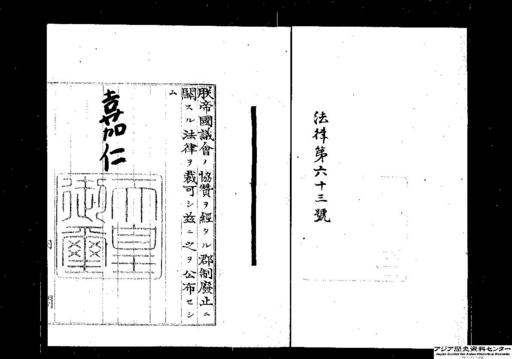 法律第六十三號
朕帝國議會ノ協贊ヲ經タル郡制廢止ニ
關スル法律ヲ裁可シ茲ニ之ヲ公布セシ
ム
嘉仁
天皇
御璽
アジア歴史資料センター
Japan Center for Asian Historical Records